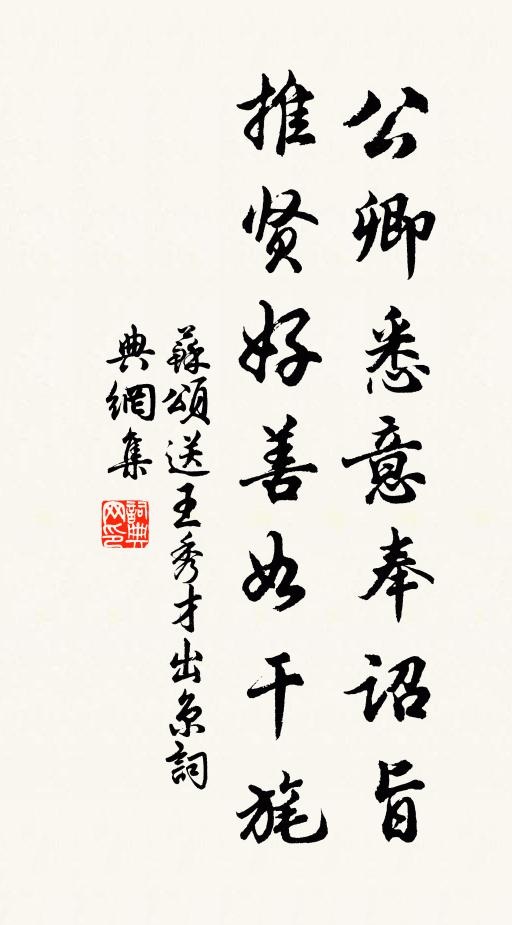 公卿悉意奉詔旨
推贤好善如干旄
蘇頌送王秀才出京詞
典網集
詞典网印